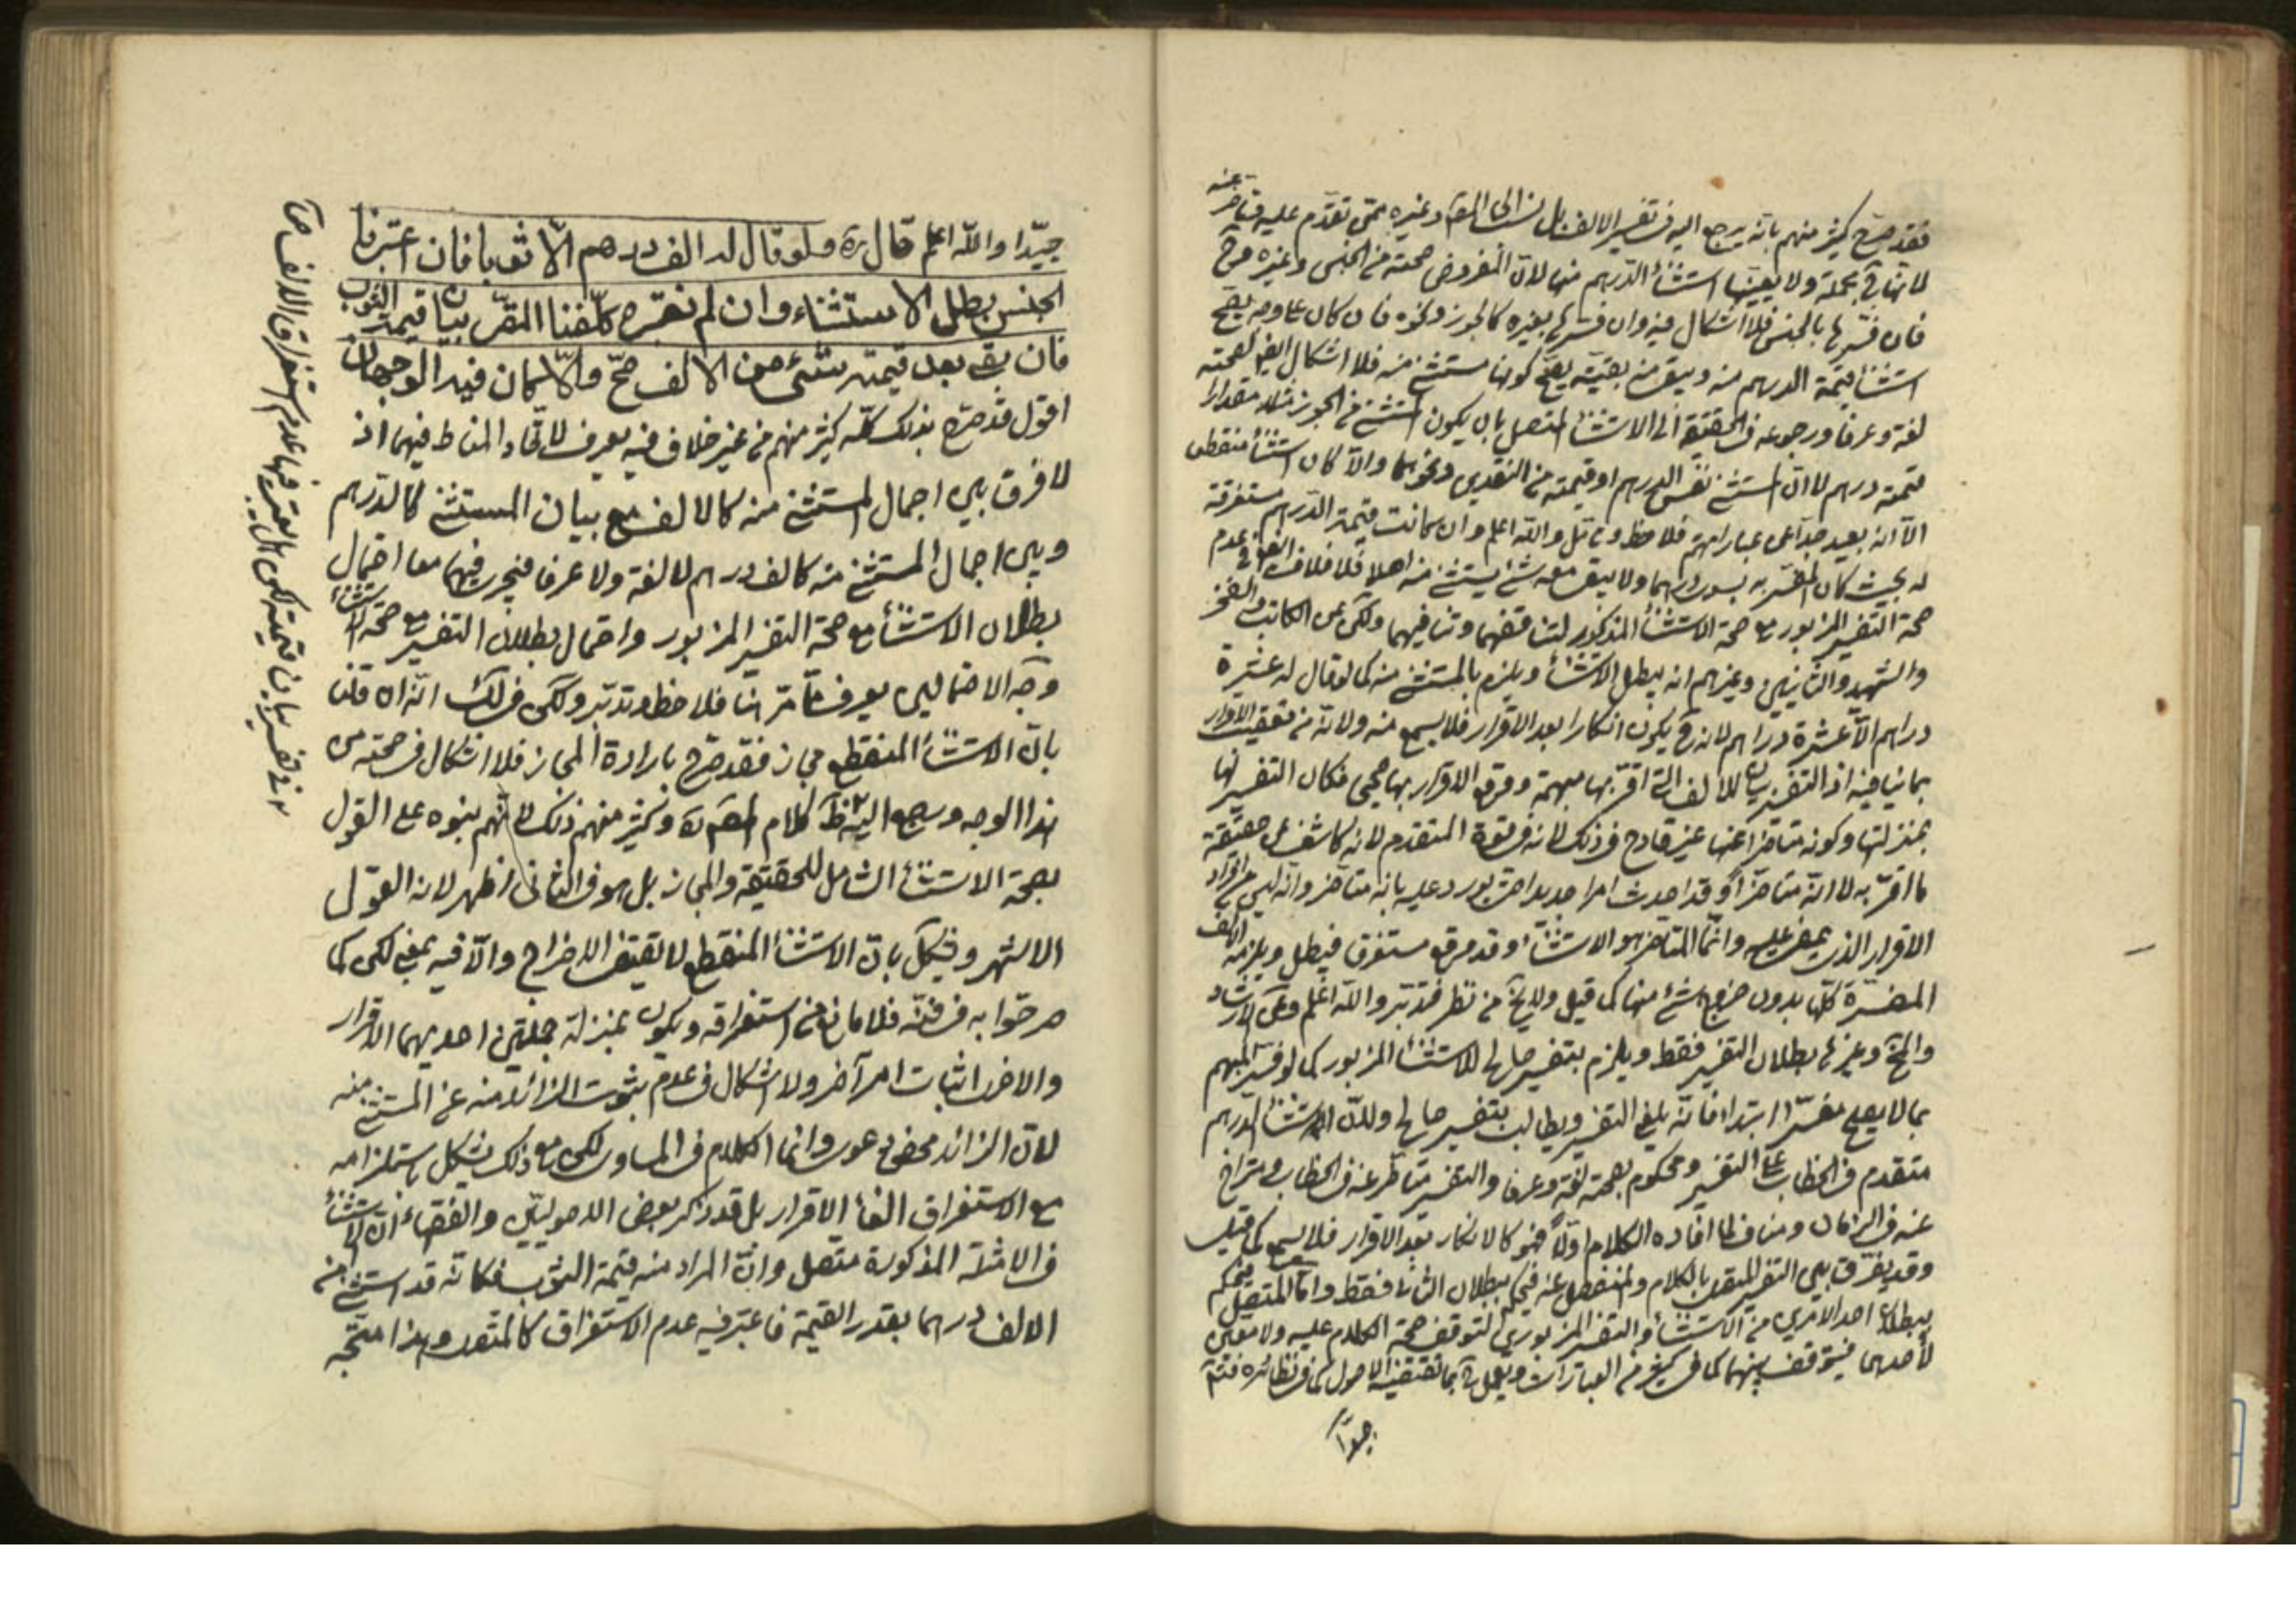 فقد صرح كثير منهم بانه يرجع اليه في تفسير الالف بل نسب الى المقر وغيره ممن تقدم عليه وتاخر عنه
لانها مجملة ولا يعينها استثناء الدرهم منها لان المفروض صحته من الجنس وغيره
فان فسرها بالجنس فلا اشكال فيه وان فسرها بغيره كالجوز ونحوه فان كان على وجه يصح
استثناء قيمة الدرهم منه ويبقى من بقيته يصح كونها مستثنى منه فلا اشكال ايضا لصحته
لغة وعرفا ورجوعه في الحقيقة الى الاستثناء المتصل بان يكون استثنى من الجوز مثلا مقدارا
قيمته درهم لا ان استثنى نفس الدرهم او قيمته من النقدين ونحوهما والا كان استثناء منقطعا
الا انه بعيد جدا عن عباراتهم فلاحظ وتامل والله اعلم وان كانت قيمة الدرهم مستغرقة
له بحيث كان المفسر به يسوى درهما ولا يبقى معه شيء يستثنى منه اصلا فلا خلاف ايضا في عدم
صحة التفسير المزبور مع صحة الاستثناء المذكور لتناقضهما وتنافيهما ولكن عن الكاتب والفخر
والشهيد والثانيين وغيرهم انه يبطل الاستثناء ويلزم بالمستثنى منه كما لو قال له عشرة
دراهم الا عشرة دراهم لانه يكون انكارا بعد الاقرار فلا يسمع منه ولانه من تعقيب الاقرار
بما ينافيه اذ التفسير بيان للالف التي اقر بها مبهمة ووقوع الاقرار بها صحيح فكان التفسير لها
بمنزلتها وكونه متاخرا عنها غير قادح في ذلك لانه في قوة المتقدم لانه كاشف عن حقيقة
ما اقر به لا انه متاخر او قد احدث امرا جديدا حتى يورد عليه بانه متاخر وانه ليس من افراد
الاقرار الذي يمضى عليه وانما المتاخر هو الاستثناء وقد وقع مستغرقا فيبطل ويلزمه الالف
المفسرة كلها بدون خروج شيء منها كما قيل ولا يخ من نظر فتدبر والله اعلم وعن الارشاد
والمخ وغيرها بطلان التفسير فقط ويلزم بتفسير صالح للاستثناء المزبور كما لو فسر المبهم
بما لا يصلح مفسرا ابتداء فانه يلغى التفسير ويطالب بتفسير صالح ولان الاستثناء للدرهم
متقدم في الخطاب على التفسير ومحكوم بصحته لغة وعرفا والتفسير متاخر عنه في الخطاب ومتراخ
عنه في الزمان ومناف لما افاده الكلام اولا فهو كالانكار بعد الاقرار فلا يسمع كما قيل
وقد يفرق بين التفسير المتصل بالكلام والمنفصل عنه فيحكم ببطلان الثاني فقط واما المتصل فيحكم
ببطلان احد الامرين من الاستثناء والتفسير المزبورين لتوقف صحة الكلام عليه ولا معين
لاحدهما فيتوقف بينهما كما في كثير من العبارات ويعمل بما تقتضيه الاصول كما في نظائره فتم
جيدا
جيدا والله اعلم قال ره ولو قال له الف درهم الا ثوبا فان اعتبرنا
الجنس بطل الاستثناء وان لم نعتبره كلفنا المقر بيان قيمة الثوب
فان بقي بعد قيمته شيء من الالف صح والا كان فيه الوجهان
اقول قد صرح بذلك كله كثير منهم من غير خلاف فيه يعرف لاتحاد المناط فيهما اذ
لا فرق بين اجمال المستثنى منه كالالف مع بيان المستثنى كالدرهم
وبين اجمال المستثنى منه كالف درهم لا لغة ولا عرفا فيجري فيهما معا احتمال
بطلان الاستثناء مع صحة التفسير المزبور واحتمال بطلان التفسير مع صحة الاستثناء
وجه الاحتمالين يعرف مما مر هنا فلاحظ وتدبر ولكن في لك انه ان قلنا
بان الاستثناء المنقطع مجاز فقد صرح بارادة المجاز فلا اشكال في صحته من
هذا الوجه ويرجع اليه ظ كلام المصنف ره وكثير منهم ذلك لانهم بنوه على القول
بصحة الاستثناء الشامل للحقيقة والمجاز بل هو في الثاني اظهر لانه القول
الاشهر ويشكل بان الاستثناء المنقطع لا يقتضي الاخراج والا فيه بمعنى لكن كما
صرحوا به في فنه فلا مانع من استغراقه ويكون بمنزلة جملتين احديهما الاقرار
والاخرى اثبات امر آخر ولا اشكال في عدم ثبوت الزائد منه عن المستثنى منه
لان الزائد محض دعوى وانما الكلام في المساوي لكن مع ذلك يشكل باستلزامه
مع الاستغراق الغاء الاقرار بل قد ذكر بعض الاصوليين والفقهاء ان الاستثناء
في الامثلة المذكورة متصل وان المراد منه قيمة الثوب فكانه قد استثنى من
الالف درهما بقدر القيمة فاعتبر فيه عدم الاستغراق كالمتصل وهذا متجه